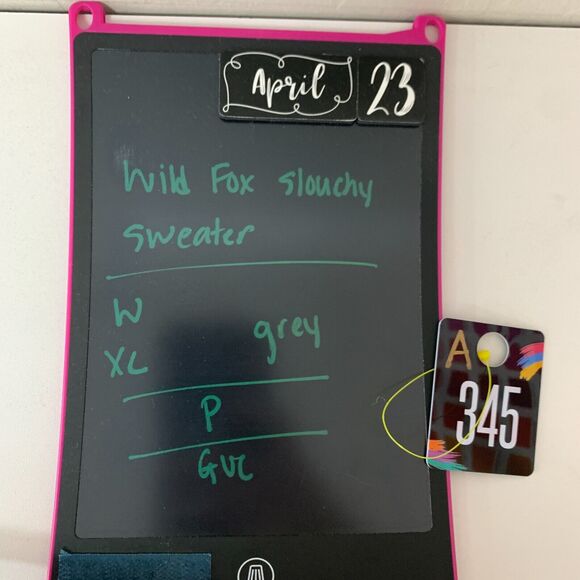 April 23
Wild Fox slouchy
sweater
W
XL grey
P
GUC
A
345